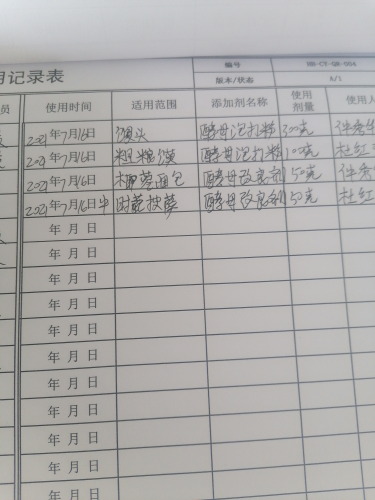 编号
用记录表
版本/状态 A/1
员 使用时间 适用范围 添加剂名称 使用剂量 使用人
2021年7月16日 馒头 酵母泡打粉 300克
2021年7月16日 粗粮馍 酵母泡打粉 100克 杜红
2021年7月16日 面包 酵母改良剂 50克
2021年7月16日 酵母改良剂 50克 杜红
年 月 日
年 月 日
年 月 日
年 月 日
年 月 日
年 月 日
年 月 日
年 月 日
年 月 日
年 月 日
年 月 日